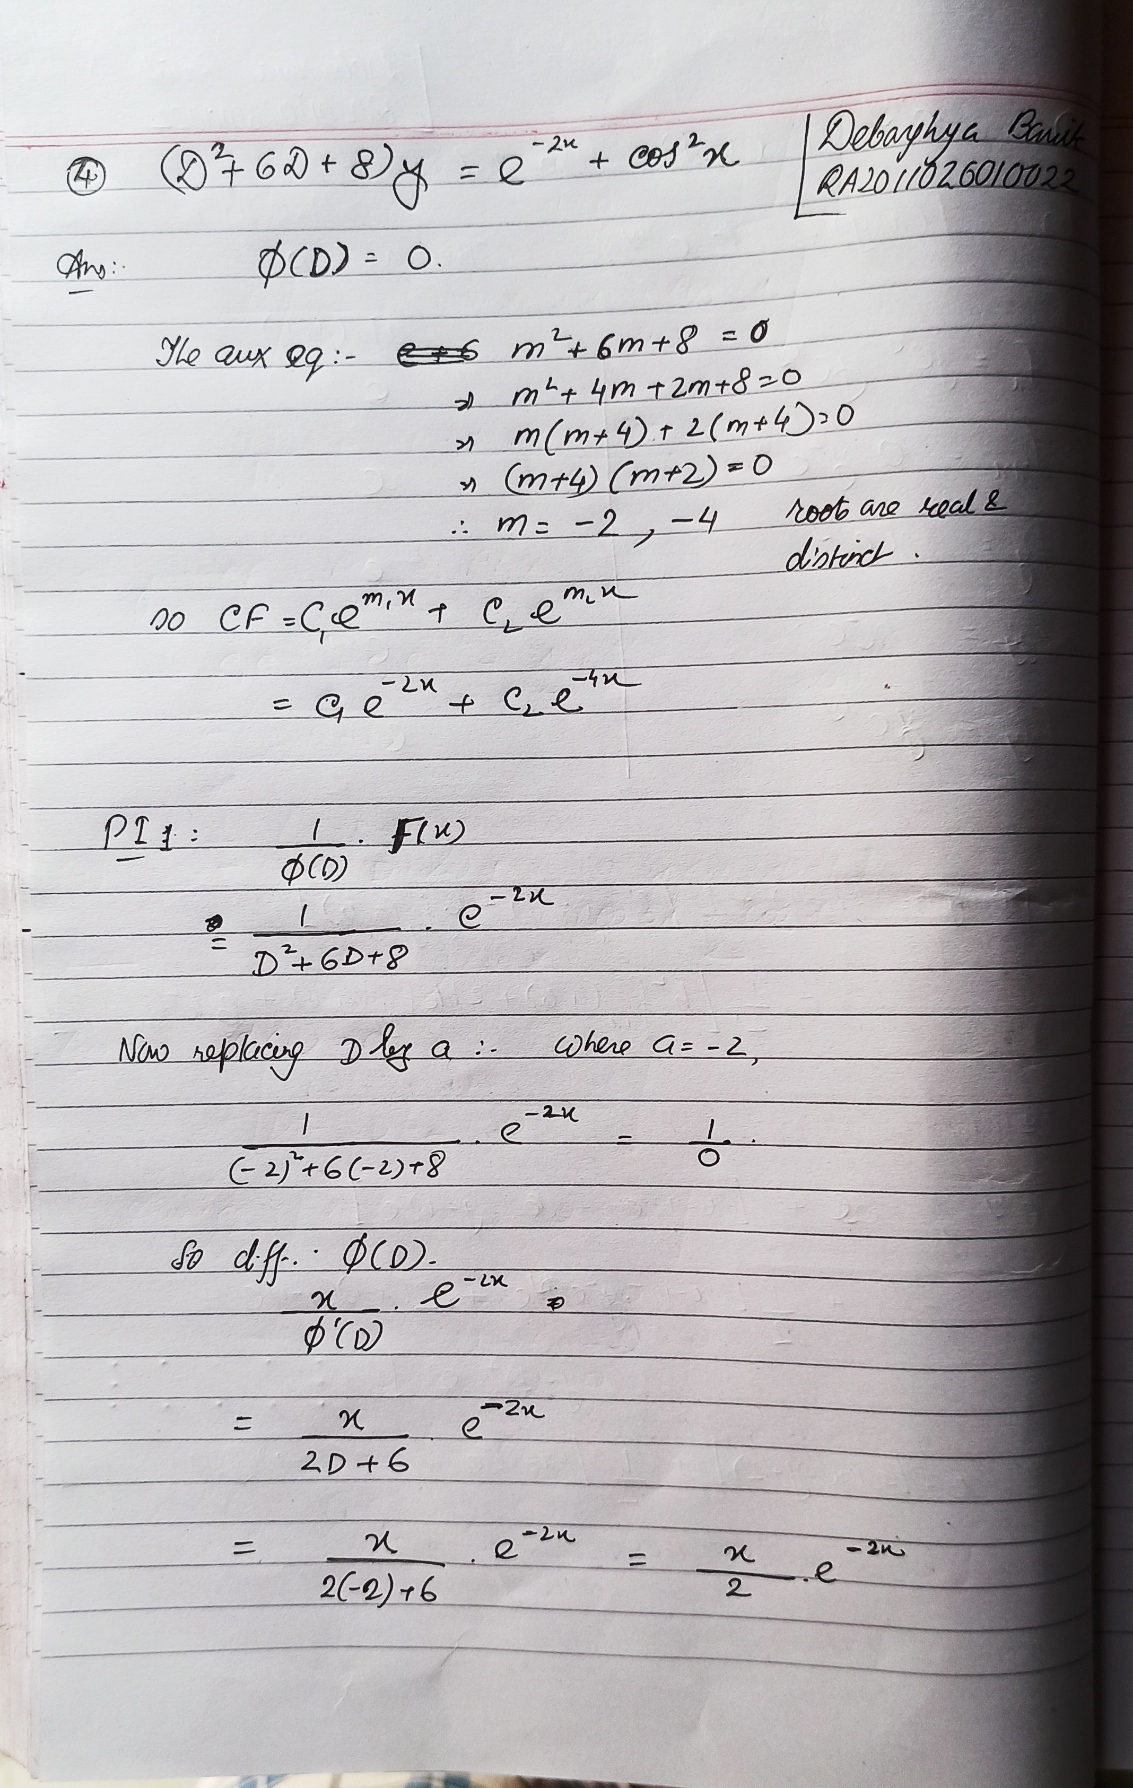 ④ (D²+6D+8)y = e^{-2x} + cos²x
Debarghya Banik
RA2011026010022
Ans:- φ(D) = 0.
The aux eq:- m²+6m+8 = 0
⇒ m²+4m+2m+8=0
⇒ m(m+4)+2(m+4)=0
⇒ (m+4)(m+2)=0
∴ m = -2, -4 roots are real &
distinct.
so CF = C₁e^{m₁x} + C₂e^{m₂x}
= C₁e^{-2x} + C₂e^{-4x}
PI 1: 1/φ(D) . F(x)
= 1/(D²+6D+8) . e^{-2x}
Now replacing D by a :- where a = -2,
1/((-2)²+6(-2)+8) . e^{-2x} = 1/0.
So diff.. φ(D).
x/φ'(D) . e^{-2x}
= x/(2D+6) . e^{-2x}
= x/(2(-2)+6) . e^{-2x} = x/2 . e^{-2x}